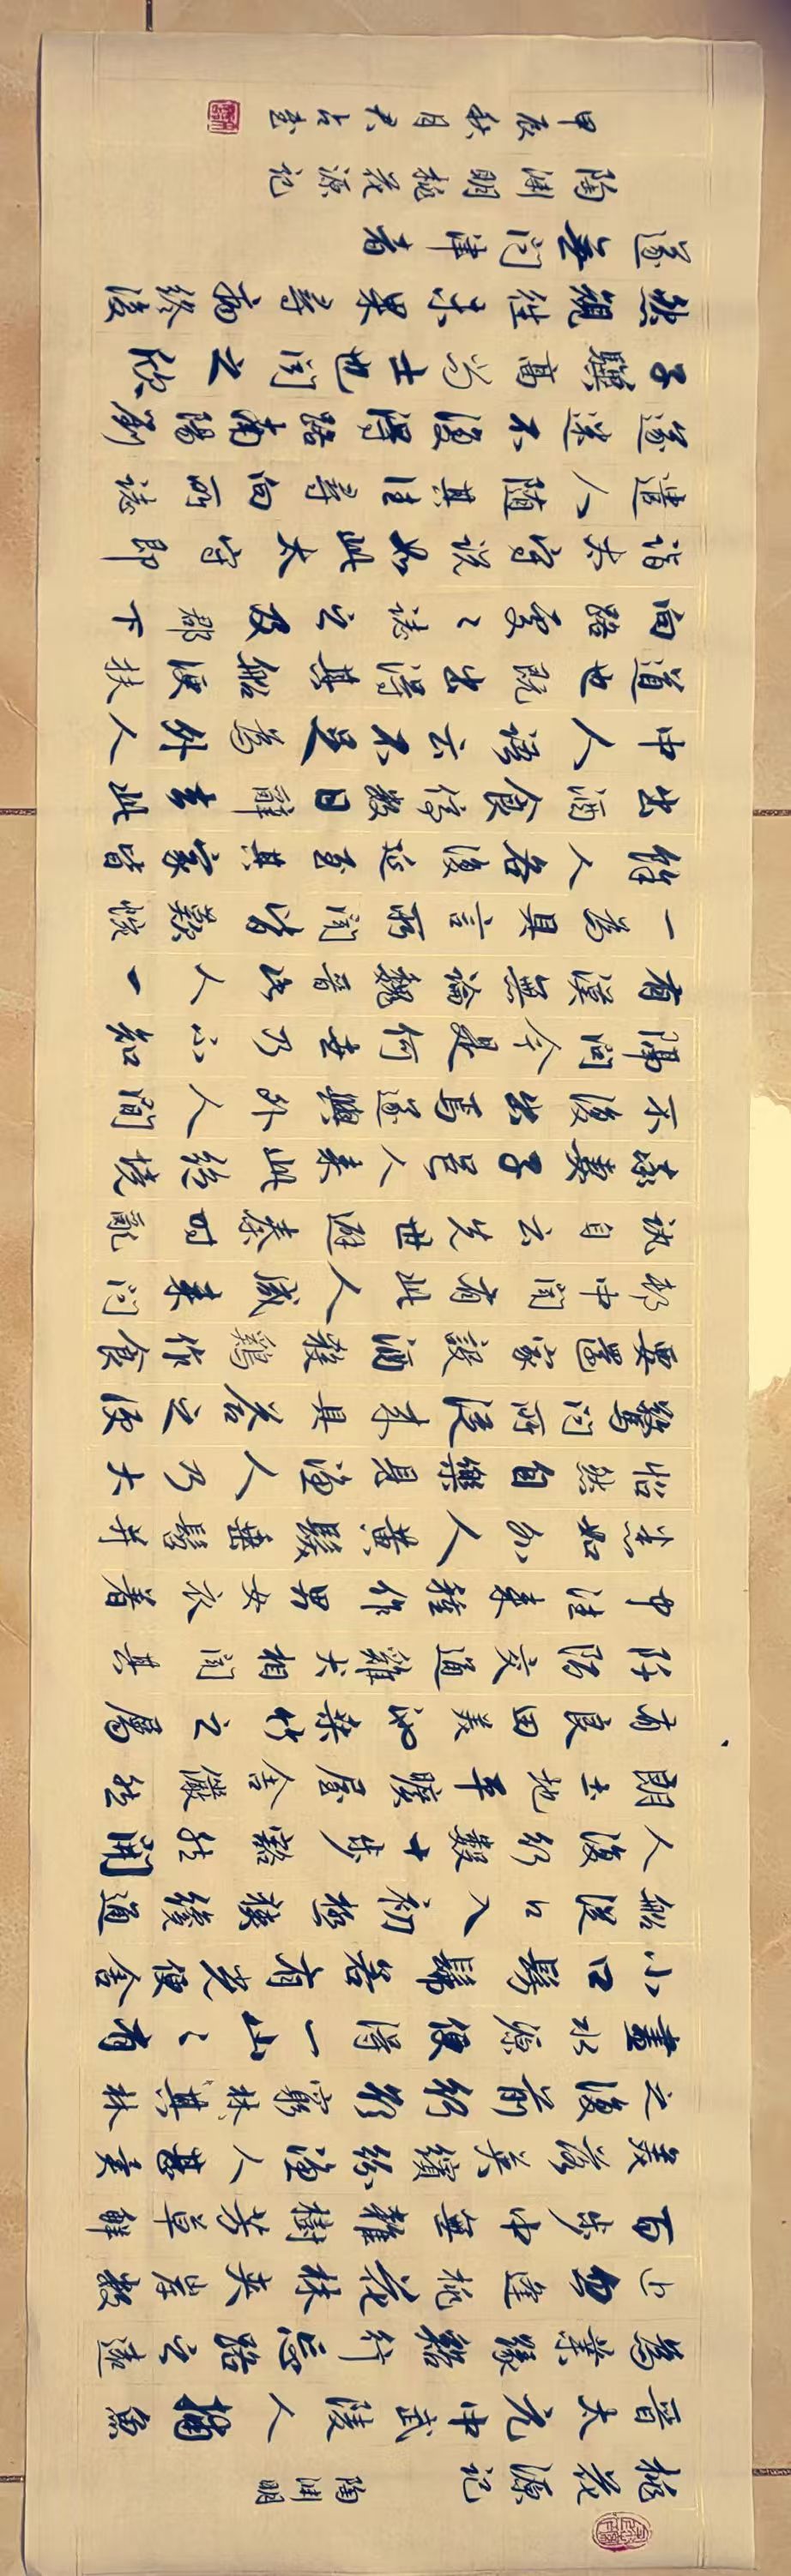 桃花源記 陶渊明
晉太元中武陵人捕魚
為業緣谿行忘路之遠
近忽逢桃花林夹岸數
百步中無雜樹芳草鮮
美落英繽紛漁人甚異
之復前行欲窮林其林
盡水源便得一山〻有
小口髣髴若有光便舍
船從口入初極狹纔通
人復行數十步豁然開
朗土地平曠屋舍儼然
有良田美池桑竹之屬
阡陌交通雞犬相聞其
中往来種作男女衣著
悉如外人黄髮垂髫并
怡然自樂見漁人乃大
驚問所從来具答之便
要還家設酒殺鷄作食
邨中聞有此人咸来問
訊自云先世避秦時亂
率妻子邑人来此絶境
不復出焉遂與外人間
隔問今是何世乃不知
有漢無論魏晉此人一
一為具言所聞皆歎惋
餘人各復延至其家皆
出酒食停數日辭去此
中人語云不足為外人
道也既出得其船便扶
向路處〻誌之及郡下
詣太守説如此太守即
遣人随其往尋向所誌
遂迷不復得路南陽劉
子驥高尚士也聞之欣
然規往未果尋病終後
遂無問津者
陶渊明桃花源記
甲辰秋月